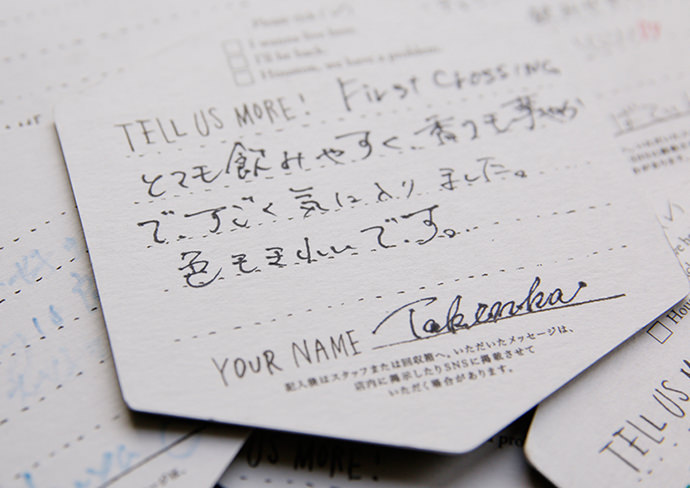 Please tick (✓)
I wanna live here.
I'll be back.
Houston, we have a problem.
TELL US MORE! First Crossing
とても飲みやすく、香りも華やか
で、すごく気に入りました。
色もきれいです。
YOUR NAME Takenaka
記入後はスタッフまたは回収箱へ。いただいたメッセージは、
店内に掲示したりSNSに掲載させて
いただく場合があります。
US MORE!
TELL US M